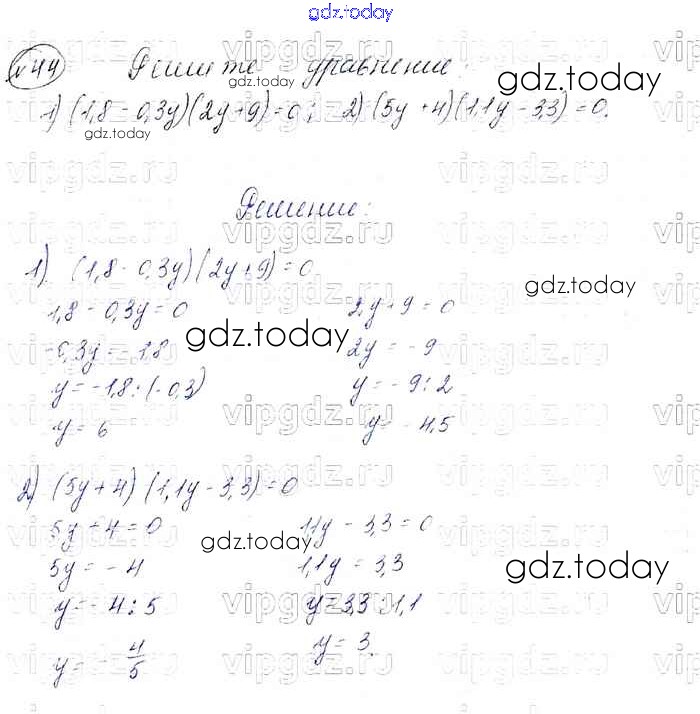 gdz.today
№44 Решите уравнение:
1) (1,8 - 0,3y)(2y + 9) = 0; 2) (5y + 4)(1,1y - 3,3) = 0.
Решение:
1) (1,8 - 0,3y)(2y + 9) = 0
1,8 - 0,3y = 0 2y + 9 = 0
-0,3y = -1,8 2y = -9
y = -1,8 : (-0,3) y = -9 : 2
y = 6 y = -4,5
2) (5y + 4)(1,1y - 3,3) = 0
5y + 4 = 0 1,1y - 3,3 = 0
5y = -4 1,1y = 3,3
y = -4 : 5 y = 3,3 : 1,1
y = -4/5 y = 3.
gdz.today
gdz.today
gdz.today
gdz.today
gdz.today
gdz.today
gdz.today
gdz.today
vipgdz.ru